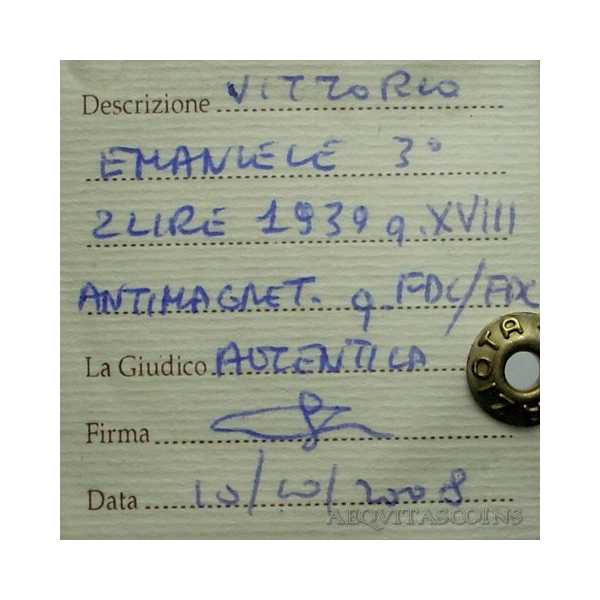 Descrizione VITTORIO
EMANUELE 3°
2 LIRE 1939 q. XVIII
ANTIMAGNET. q. FDC/FDC
La Giudico AUTENTICA
Firma
Data 10/10/2008
AEQVITASCOINS